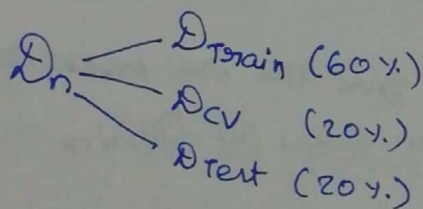 D_Train (60%)
D_n
D_CV (20%)
D_Test (20%)